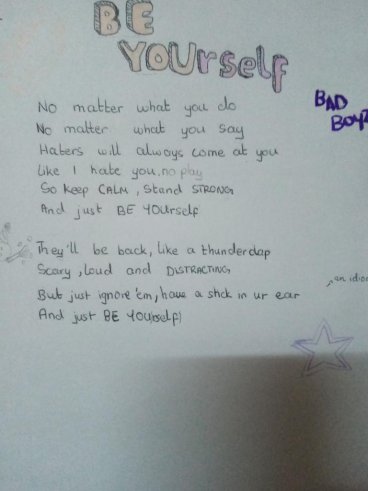 BE
YOUrself
BAD
BoyZ
No matter what you do
No matter what you say
Haters will always come at you
Like I hate you, no play
So keep CALM, Stand STRONG
And just BE YOUrself
They'll be back, like a thunderclap
Scary, loud and DISTRACTING
But just ignore 'em, have a stick in ur ear
And just BE YOUrself